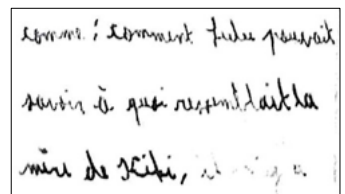 comme : comment Lulu pouvait
savoir à quoi ressemblait la
mère de Kiki,